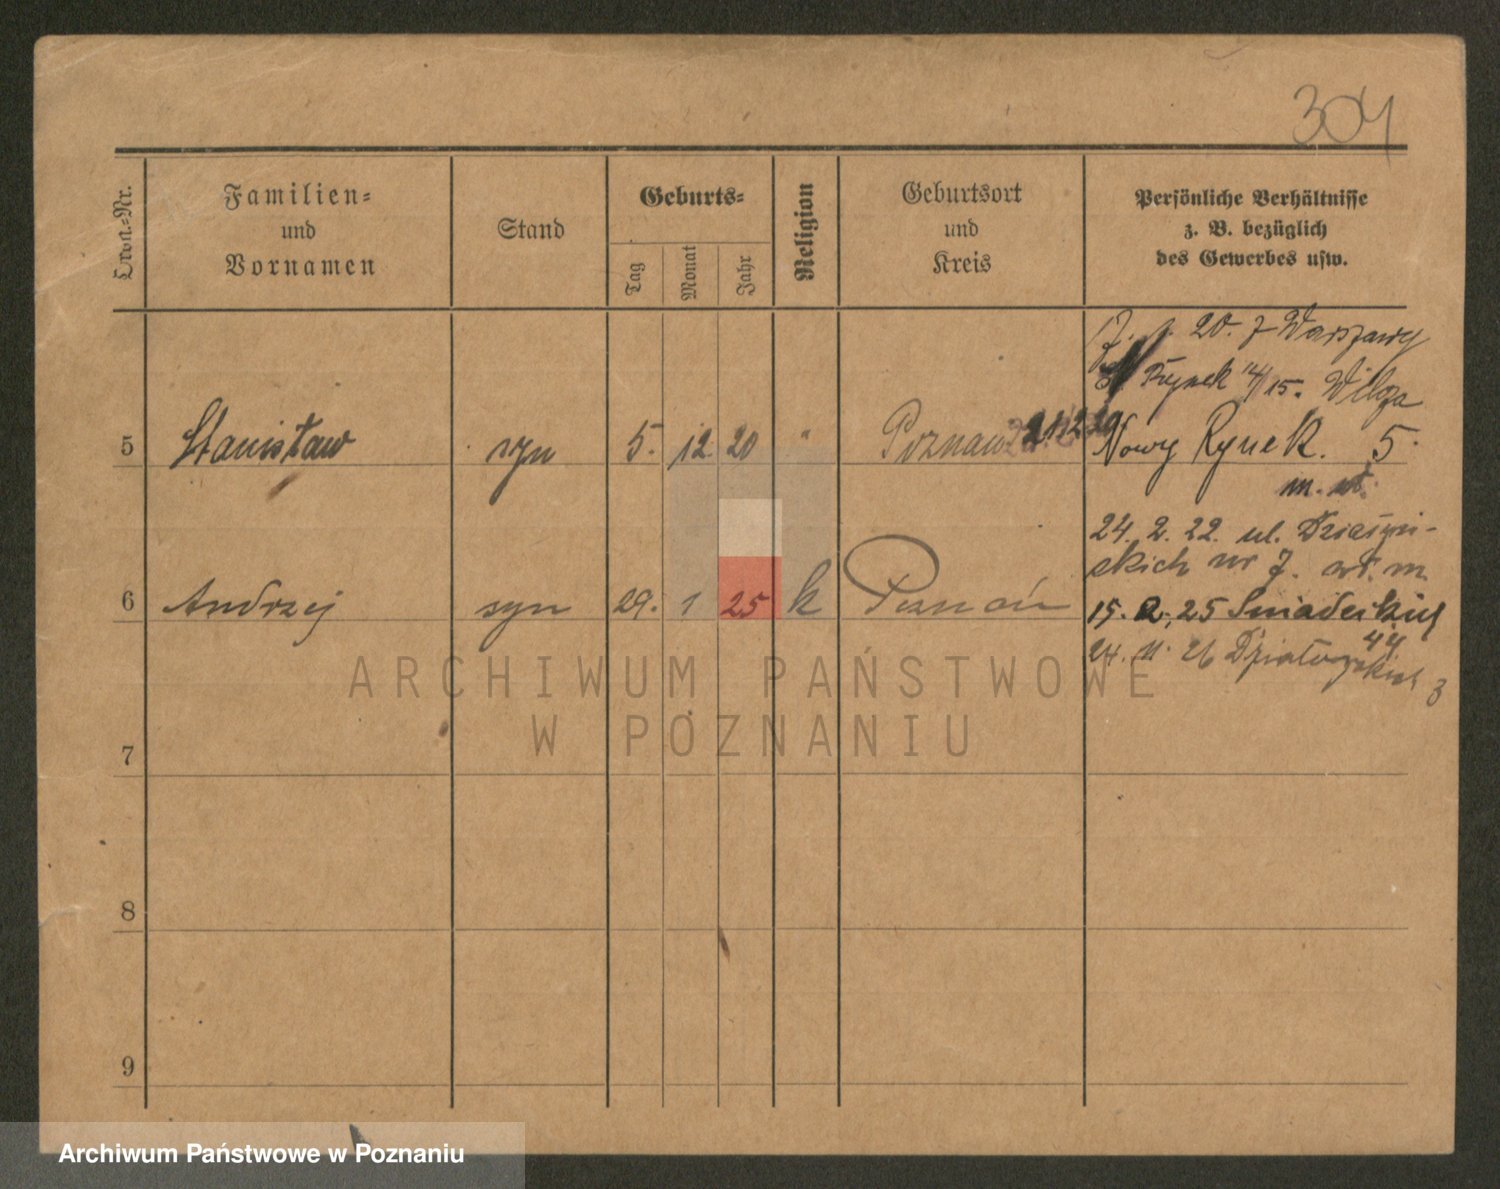 304
Ordn.-Nr.
Familien-
und
Vornamen
Stand
Geburts-
Tag
Monat
Jahr
Religion
Geburtsort
und
Kreis
Persönliche Verhältnisse
z. B. bezüglich
des Gewerbes usw.
20. z Warszawy
Rynek 14/15. Wilga
5 Stanisław syn 5. 12. 20 " Poznań Nowy Rynek. 5
24. 2. 22. ul. Działyń-
skich nr 7. wł. m.
6 Andrzej syn 29. 1 25 k Poznań 15. 2. 25 Śniadeckich
44
24. 11. 26 Działyńskich 3
7
8
9
ARCHIWUM PAŃSTWOWE
W POZNANIU
Archiwum Państwowe w Poznaniu